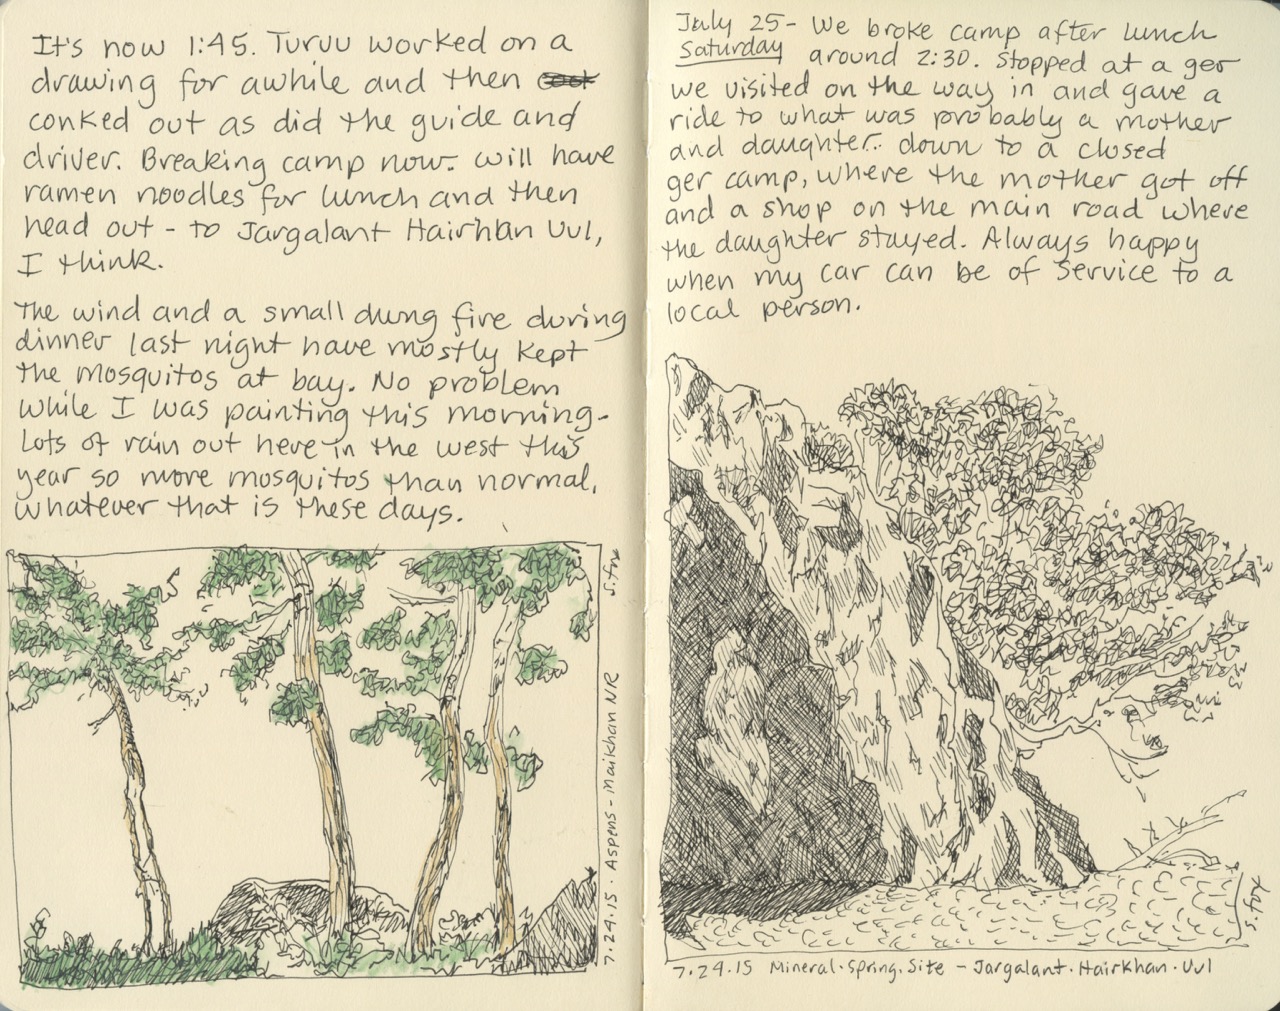 It's now 1:45. Turuu worked on a
drawing for awhile and then
conked out as did the guide and
driver. Breaking camp now. will have
ramen noodles for lunch and then
head out - to Jargalant Hairhan Uul,
I think.
The wind and a small dung fire during
dinner last night have mostly kept
the mosquitos at bay. No problem
while I was painting this morning-
Lots of rain out here in the west this
year so more mosquitos than normal,
whatever that is these days.
S. Fox
7.24.15 · Aspens - Maikhan NR
July 25 - We broke camp after lunch
Saturday around 2:30. Stopped at a ger
we visited on the way in and gave a
ride to what was probably a mother
and daughter.. down to a closed
ger camp, where the mother got off
and a shop on the main road where
the daughter stayed. Always happy
when my car can be of service to a
local person.
S. Fox
7.24.15 Mineral·Spring·Site - Jargalant·Hairkhan·Uul